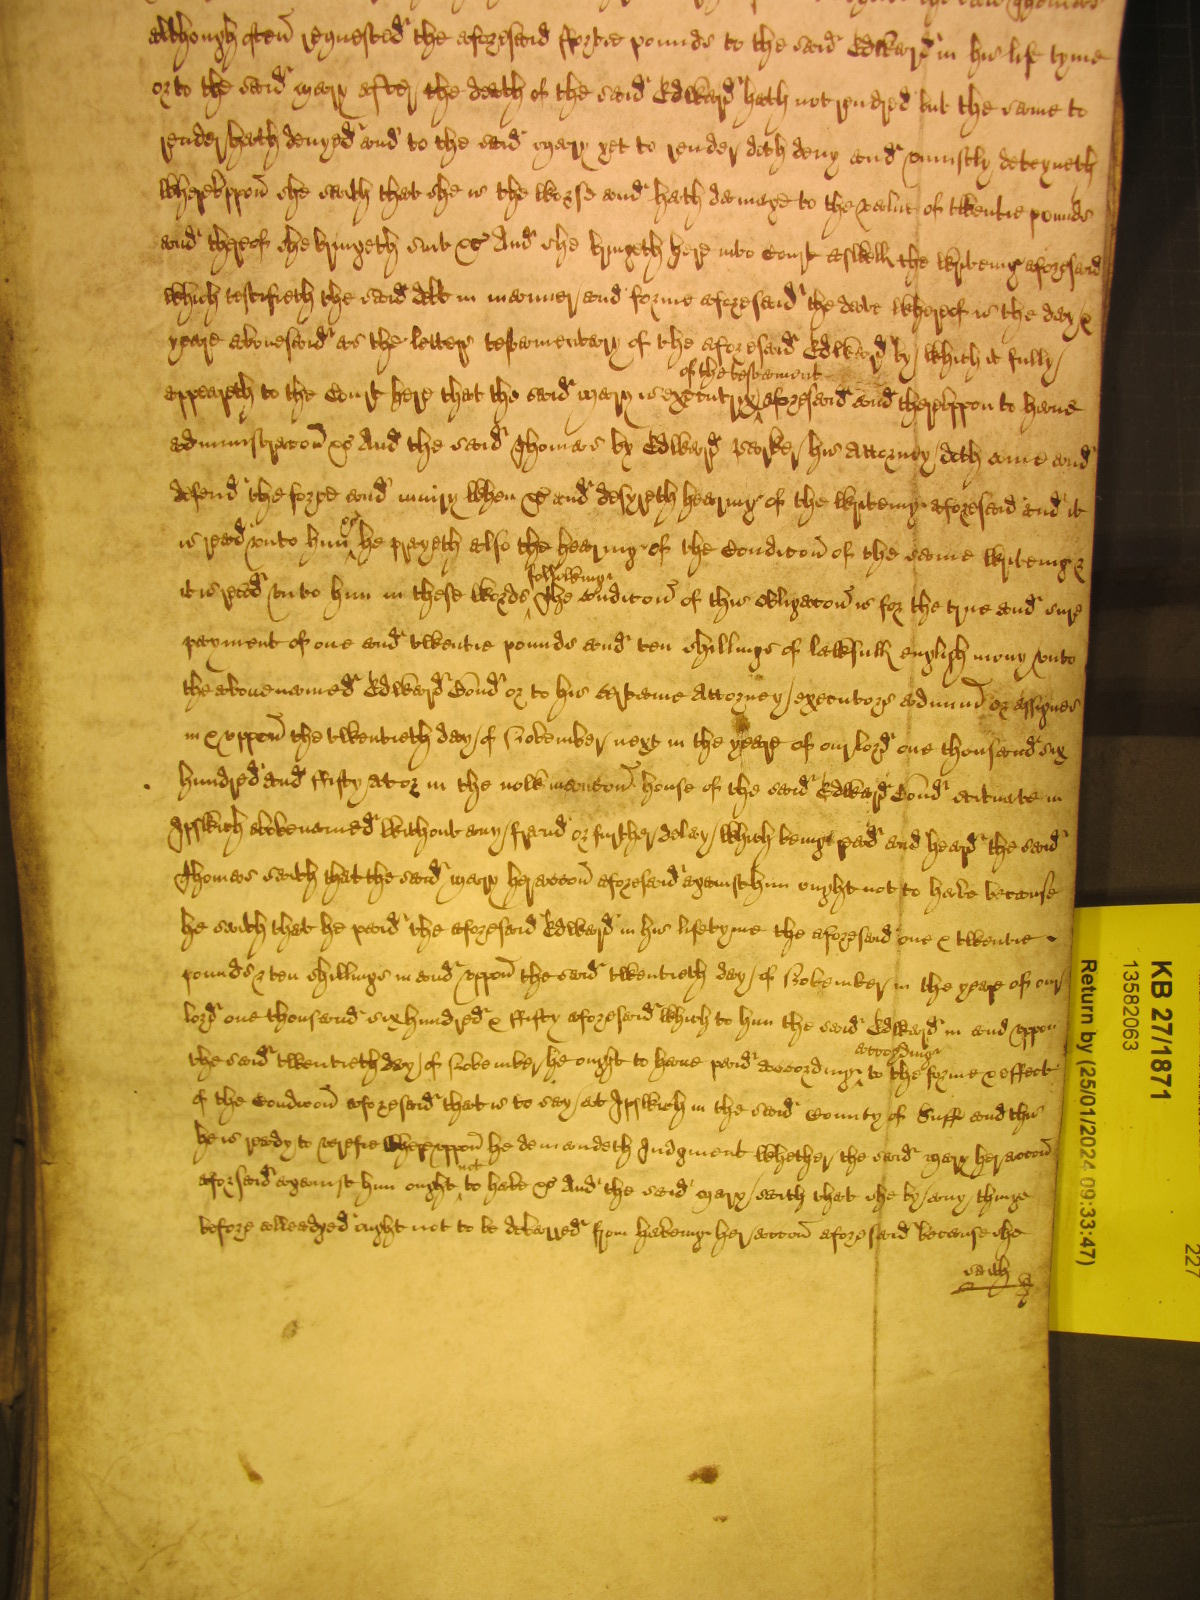 although often requested the aforesaid ffortie pounds to the said Edward in his life tyme
or to the said Mary after the death of the said Edward hath not rendred but the same to
render hath denyed and to the said Mary yet to render doth deny and uniustly deteyneth
Whereuppon she saith that she is the worse and hath damage to the value of twentie pounds
and thereof she bringeth suit &c And she bringeth here into Court aswell the writeing aforesaid
which testifieth the said debt in manner and forme aforesaid the date whereof is the day &
yeare abovesaid as the letters testamentary of the aforesaid Edward by which it fully
of the testament
appeareth to the Court here that the said Mary is executrix aforesaid and thereuppon to have
administracon &c And the said Thomas by Edward Parker his Attorney doth come and
defend the force and iniury when &c and desyreth hearing of the writeing aforesaid and it
is read unto him &c he prayeth also the hearing of the Condicon of the same writeing &
following
it is read unto him in these words The condicon of this obligacon is for the true and sure
payment of one and twentie pounds and ten shillings of lawfull english mony unto
the abovenamed Edward Bond or to his certaine Attorney executors admin or assignes
in & uppon the twentieth day of November next in the yeare of our lord one thousand six
hundred and ffifty at or in the now mancon house of the said Edward Bond scituate in
Ipswich abovenamed without any fraud or further delay which being read and heard the said
Thomas saith that the said Mary her accon aforesaid against him ought not to have because
he saith that he paid the aforesaid Edward in his lifetyme the aforesaid one & twentie
pounds & ten shillings in and uppon the said twentieth day of November in the yeare of our
lord one thousand six hundred & ffifty aforesaid which to him the said Edward in and uppon
according
the said twentieth day of November he ought to have paid according to the forme & effect
of the Condicon aforesaid that is to say at Ipswich in the said County of Suff and this
he is ready to verefie Whereuppon he demandeth Iudgment whether the said Mary her accon
not
aforsaid against him ought to have &c And the said Mary saith that she by any thinge
before alleadged ought not to be debarred from haveing her accon aforesaid because she
saith
KB 27/1871
13582063
Return by (25/01/2024 09:33:47)
227